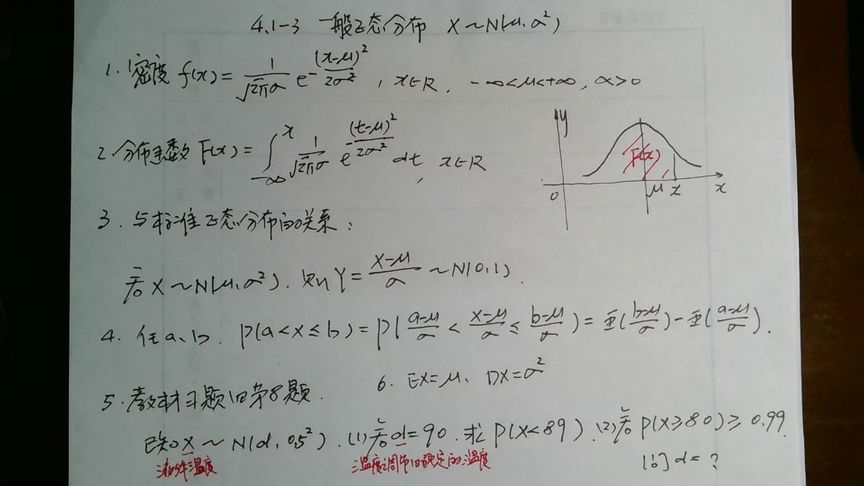 4.1-3 一般正态分布 X~N(μ,σ²)
1. 密度 f(x) = 1/(√2π σ) e^{-(x-μ)²/2σ²}, x∈R. -∞<μ<+∞, σ>0
2. 分布函数 F(x) = ∫_{-∞}^{x} 1/(√2π σ) e^{-(t-μ)²/2σ²} dt, x∈R
y
F(x)
0 μ x x
3. 与标准正态分布的关系:
若 X~N(μ,σ²). 则 Y = (X-μ)/σ ~N(0,1).
4. 任a、b. P(a<X≤b) = P((a-μ)/σ < (X-μ)/σ ≤ (b-μ)/σ) = Φ((b-μ)/σ) - Φ((a-μ)/σ).
5. 教材习题四第8题. 6. EX=μ, DX=σ²
已知 X ~ N(d, 0.5²). (1) 若 d=90. 求 P(X<89). (2) 若 P(X≥80) ≥ 0.99.
问 d=?
液体温度 温度调节器设定的温度